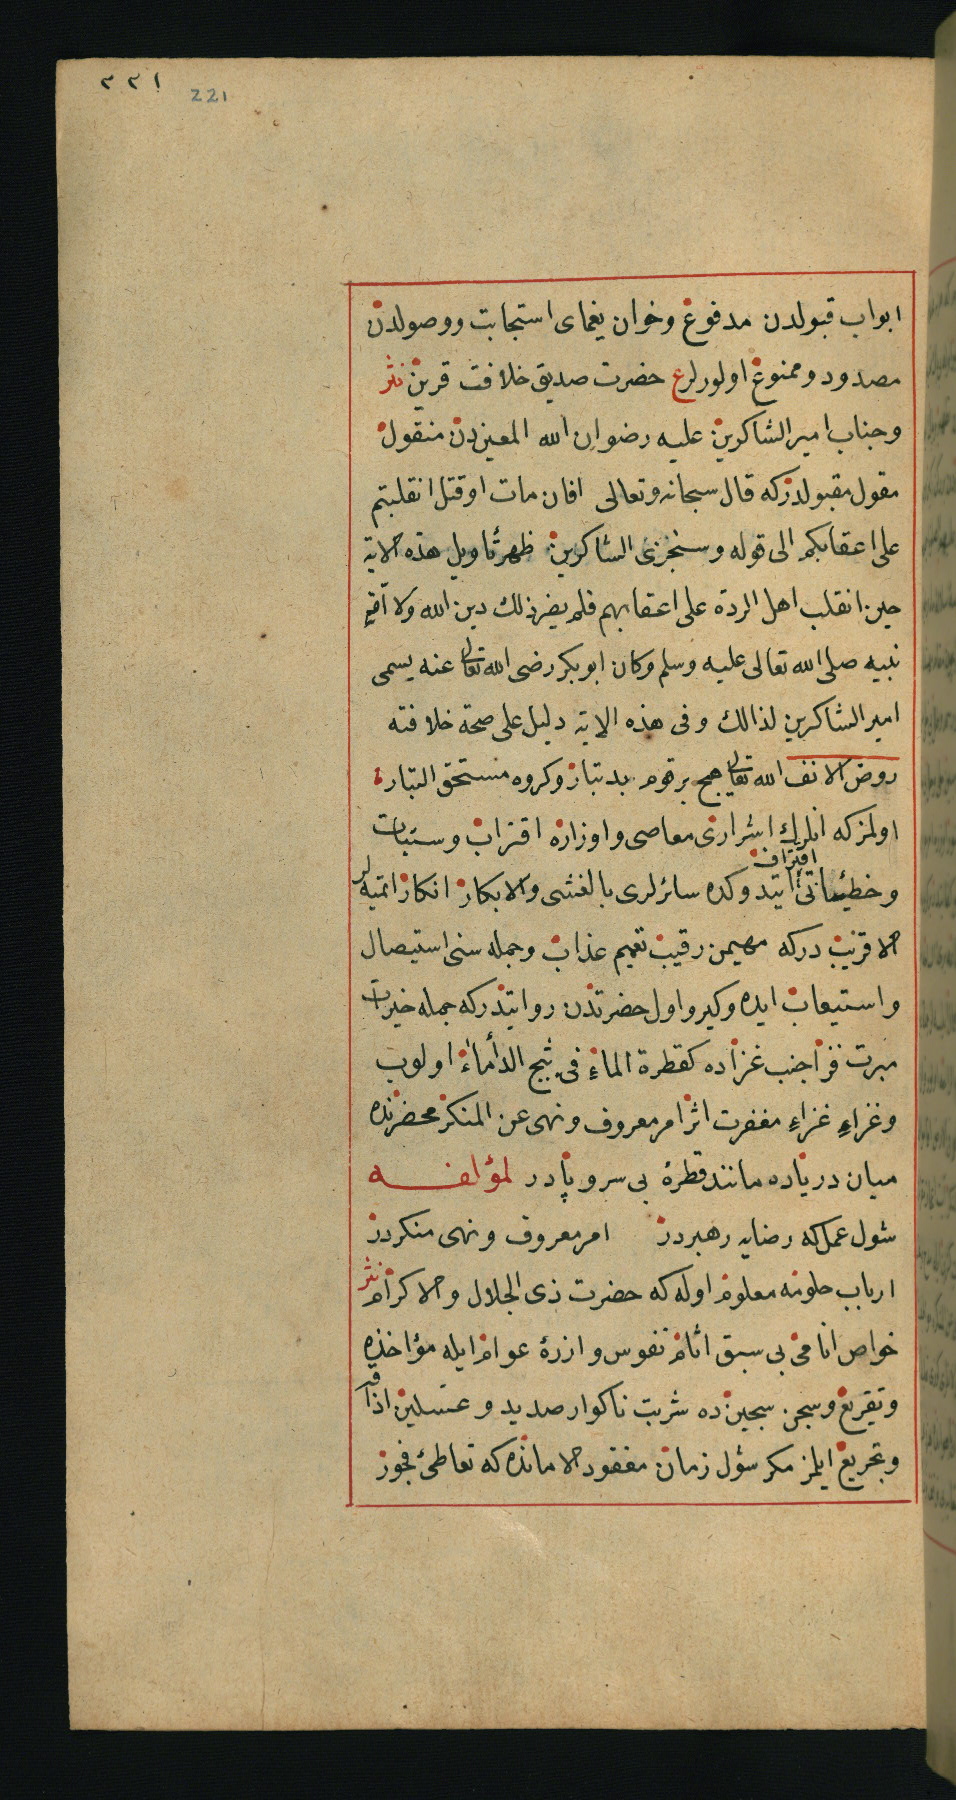 ٢٢١ 221
ابواب قبولدن مدفوع وخوان يغماى استجابت ووصولدن
مصدود وممنوع اولورلر ع حضرت صديق خلافت قرين نثر
وجناب امير الشاكرين عليه رضوان الله المعين دن منقول
مقول مقبولدركه قال سبحانه وتعالى افان مات او قتل انقلبتم
على اعقابكم الى قوله وسنجزى الشاكرين ظهر تأويل هذه الاية
حين انقلب اهل الردة على اعقابهم فلم يضر ذلك دين الله ولا امة
نبيه صلى الله تعالى عليه وسلم وكان ابو بكر رضى الله تعالى عنه يسمى
امير الشاكرين لذالك وفى هذه الاية دليل على صحة خلافته
روض الانف الله تعالى هيچ بر قوم بدتبار وكروه مستحق التباره
اولمز كه انلرك اشرارى معاصى واوزاره اقتراب وسيئات
اقتراف
وخطيئاتى ايتدوكده سائرلرى بالغشى والابكار انكار ايتميه لر
الا قريب دركه مهيمن رقيب تعميم عذاب وجمله سنى استيصال
واستيعاب ايده وكيرو اول حضرتدن روايتدركه جمله خيرات
مبرت فزا جنب غزاده كقطرة الماء فى ثبج الدأماء اولوب
وغزاء غزاء مغفرت اثر امر معروف ونهى عن المنكر محضرنده
ميان درياده مانند قطرۀ بى سر وپا در لمؤلفه
شول عمل كه رضايه رهبردر امر معروف ونهى منكردر
ارباب حلومه معلوم اوله كه حضرت ذى الجلال والاكرام نثر
خواص انامى بى سبق اثام نفوس وازرۀ عوام ايله مؤاخذه
وتقريع وسجن سجين ده شربت ناكوار صديد وغسلين اذاقه
وتجريع ايلمز مكر شول زمان مفقود الامانده كه تعاطئ فجور